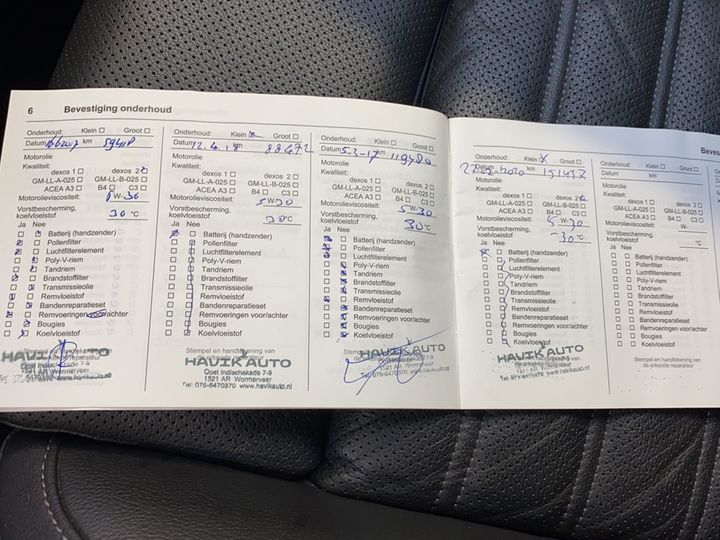 6 Bevestiging onderhoud
Onderhoud: Klein Groot
Datum km
Motorolie
Kwaliteit:
dexos 1 dexos 2
GM-LL-A-025 GM-LL-B-025
ACEA A3 B4 C3
Motorolieviscositeit: W-30
Vorstbescherming,
koelvloeistof 30 °C
Ja Nee
Batterij (handzender)
Pollenfilter
Luchtfilterelement
Poly-V-riem
Tandriem
Brandstoffilter
Transmissieolie
Remvloeistof
Bandenreparatieset
Remvoeringen voor/achter
Bougies
Koelvloeistof
HAVIK AUTO
Oost Indischekade 7-9
1521 AR Wormerveer
Tel: 075-6470370 www.havikauto.nl
Onderhoud: Klein Groot
Datum 12.4.18 km 88492
Motorolie
Kwaliteit:
dexos 1 dexos 2
GM-LL-A-025 GM-LL-B-025
ACEA A3 B4 C3
Motorolieviscositeit: 5W-30
Vorstbescherming,
koelvloeistof 30°C
Ja Nee
Batterij (handzender)
Pollenfilter
Luchtfilterelement
Poly-V-riem
Tandriem
Brandstoffilter
Transmissieolie
Remvloeistof
Bandenreparatieset
Remvoeringen voor/achter
Bougies
Koelvloeistof
Stempel en handtekening van
HAVIK AUTO
Oost Indischekade 7-9
1521 AR Wormerveer
Tel: 075-6470370 www.havikauto.nl
Onderhoud: Klein Groot
Datum km 119480
Motorolie
Kwaliteit:
dexos 1 dexos 2
GM-LL-A-025 GM-LL-B-025
ACEA A3 B4 C3
Motorolieviscositeit: 5 W-30
Vorstbescherming,
koelvloeistof 30 °C
Ja Nee
Batterij (handzender)
Pollenfilter
Luchtfilterelement
Poly-V-riem
Tandriem
Brandstoffilter
Transmissieolie
Remvloeistof
Bandenreparatieset
Remvoeringen voor/achter
Bougies
Koelvloeistof
HAVIK AUTO
1521 AR Wormerveer
Tel: 075-6470370 www.havikauto.nl
Onderhoud: Klein Groot
Datum km
Motorolie
Kwaliteit:
dexos 1 dexos 2
GM-LL-A-025 GM-LL-B-025
ACEA A3 B4 C3
Motorolieviscositeit: 5 W-30
Vorstbescherming,
koelvloeistof -30 °C
Ja Nee
Batterij (handzender)
Pollenfilter
Luchtfilterelement
Poly-V-riem
Tandriem
Brandstoffilter
Transmissieolie
Remvloeistof
Bandenreparatieset
Remvoeringen voor/achter
Bougies
Koelvloeistof
Stempel en handtekening van
HAVIK AUTO
Beves
Onderhoud: Klein Groot
Datum km
Motorolie
Kwaliteit:
dexos 1 dexos 2
GM-LL-A-025 GM-LL-B-025
ACEA A3 B4 C3
Motorolieviscositeit: W-
Vorstbescherming,
koelvloeistof °C
Ja Nee
Batterij (handzender)
Pollenfilter
Luchtfilterelement
Poly-V-riem
Tandriem
Brandstoffilter
Transmissieolie
Remvloeistof
Bandenreparatieset
Remvoeringen voor/achter
Bougies
Koelvloeistof
Stempel en handtekening van
de erkende reparateur